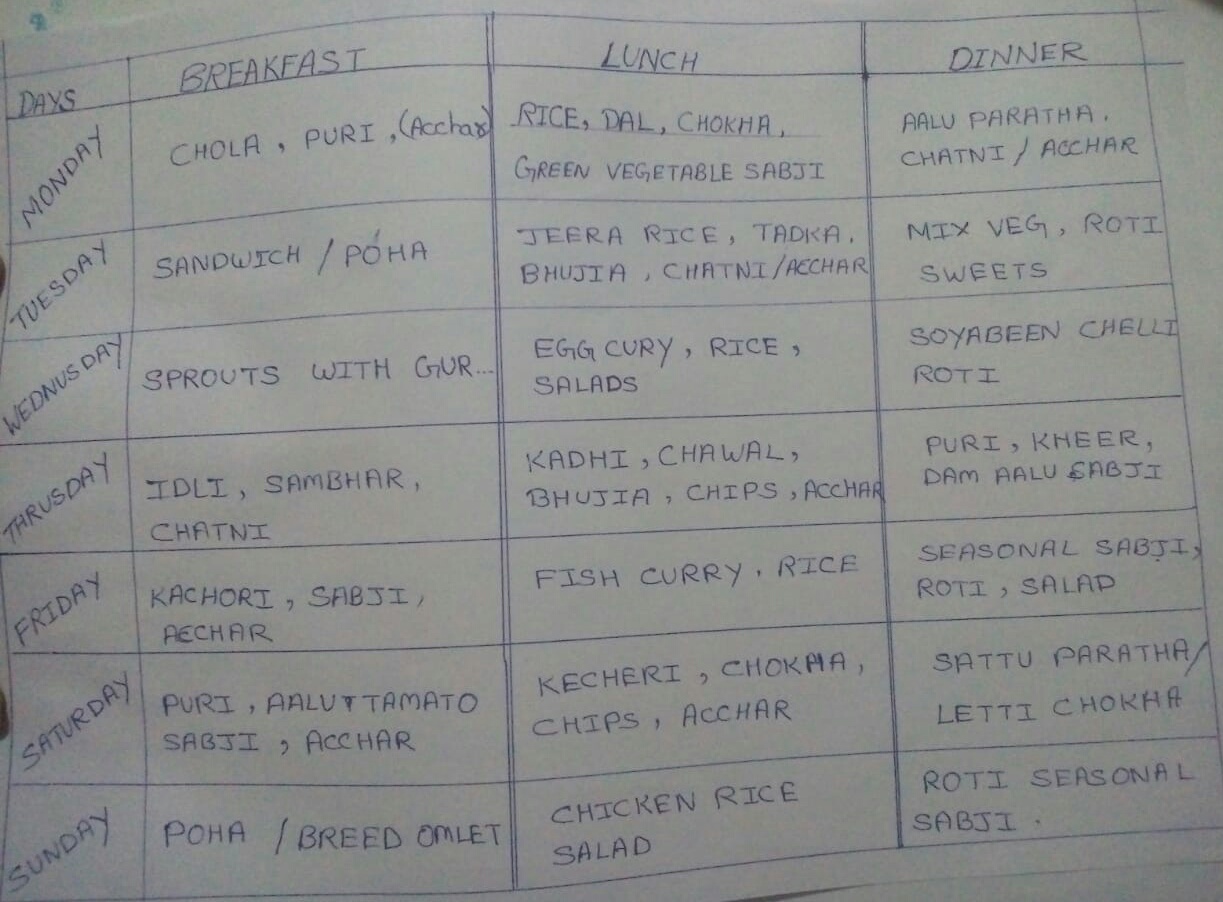 DAYS BREAKFAST LUNCH DINNER
MONDAY
CHOLA , PURI , (Acchar)
RICE, DAL, CHOKHA,
GREEN VEGETABLE SABJI
AALU PARATHA,
CHATNI / ACCHAR
TUESDAY
SANDWICH / POHA
JEERA RICE, TADKA,
BHUJIA , CHATNI/ACCHAR
MIX VEG, ROTI
SWEETS
WEDNUSDAY
SPROUTS WITH GUR...
EGG CURY , RICE ,
SALADS
SOYABEEN CHELLI
ROTI
THRUSDAY
IDLI , SAMBHAR ,
CHATNI
KADHI , CHAWAL,
BHUJIA , CHIPS , ACCHAR
PURI , KHEER,
DAM AALU SABJI
FRIDAY
KACHORI , SABJI ,
ACCHAR
FISH CURRY , RICE
SEASONAL SABJI,
ROTI , SALAD
SATURDAY
PURI , AALU + TAMATO
SABJI , ACCHAR
KECHERI , CHOKHA ,
CHIPS , ACCHAR
SATTU PARATHA/
LETTI CHOKHA
SUNDAY
POHA / BREED OMLET
CHICKEN RICE
SALAD
ROTI SEASONAL
SABJI .